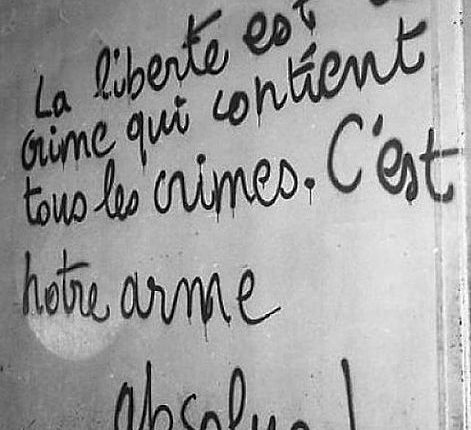 La liberté est
crime qui contient
tous les crimes. C'est
notre arme
absolue!